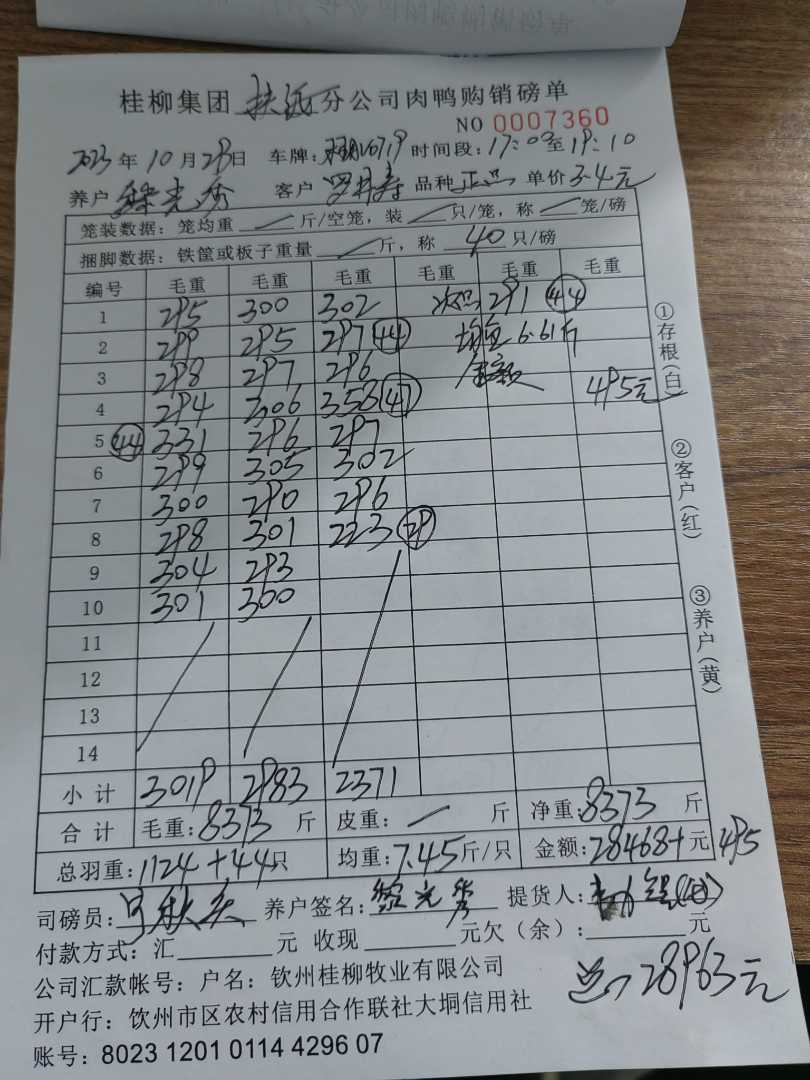 桂柳集团 扶绥 分公司肉鸭购销磅单
NO 0007360
2023 年 10 月 29 日 车牌: 0719 时间段: 17:00 至 19:10
养户 黎光秀 客户 罗月寿 品种 正品 单价 3.4元
笼装数据: 笼均重 / 斤/空笼, 装 / 只/笼, 称 / 笼/磅
捆脚数据: 铁筐或板子重量 / 斤, 称 40 只/磅
编号 毛重 毛重 毛重 毛重 毛重 毛重
1 295 300 302 次品 291 (44)
2 299 295 297 (44) 均重 6.61斤
3 298 297 296 金额
4 294 306 353 (47) 495元
5 (44) 331 296 297
6 299 305 302
7 300 290 296
8 298 301 223 (29)
9 304 293
10 301 300
11
12
13
14
小计 3019 2983 2371
合计 毛重: 8373 斤 皮重: 斤 净重: 8373 斤
总羽重: 1124 + 44 只 均重: 7.45 斤/只 金额: 28468+ 元 495
司磅员: 养户签名: 黎光秀 提货人:
付款方式: 汇 元 收现 元欠(余): 元
公司汇款帐号: 户名: 钦州桂柳牧业有限公司
总: 28963元
开户行: 钦州市区农村信用合作联社大垌信用社
账号: 8023 1201 0114 4296 07
①存根(白)
②客户(红)
③养户(黄)